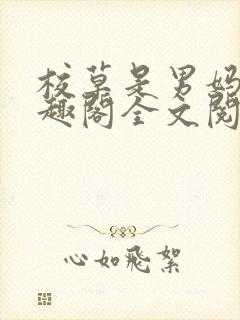 校草是男妈
趣阁全文阅
心如飛絮